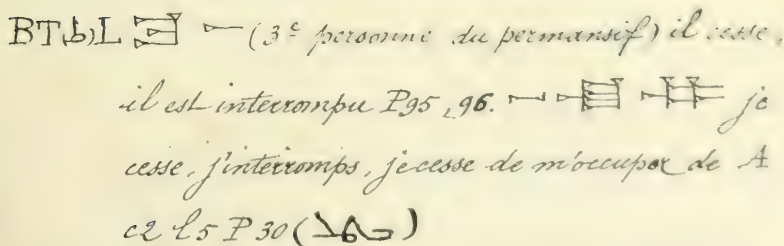 BT(ط)L (3e personne du permansif) il cesse,
il est interrompu P95, 96. je
cesse, j'interromps, je cesse de m'occuper de A
c2 l5 P30 (بطل)